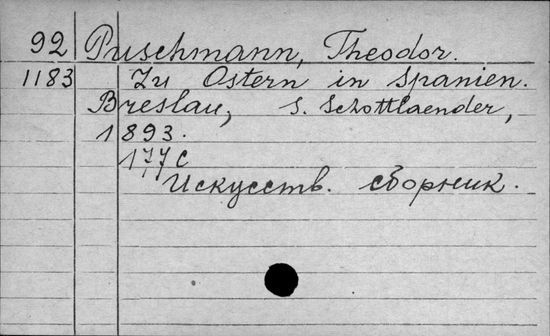 92 Puschmann, Theodor.
1183 Zu Ostern in Spanien.
Breslau, S. Schottlaender,
1893.
177 с
Искусств. сборник.